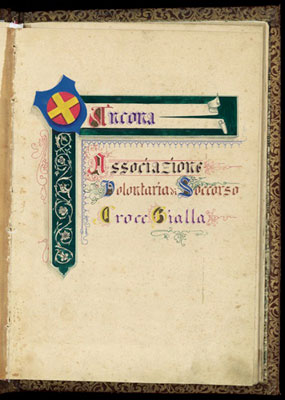 Ancona
Associazione
Volontaria di Soccorso
Croce Gialla